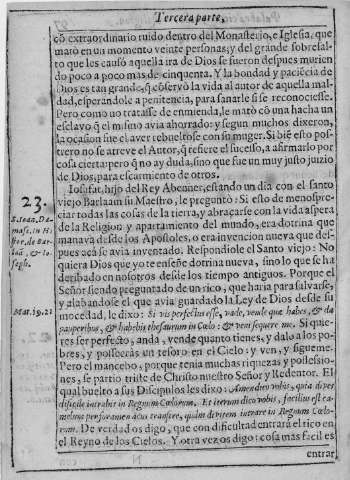 Tercera parte,
cõ extraordinario ruido dentro del Monasterio, e Iglesia, que
matò en un momento veinte personas; y del grande sobresal-
to que les causò aquella ira de Dios se fueron despues murien
do poco a poco mas de cinquenta. Y la bondad y paciẽcia de
Dios es tan grande, q̃ cõservò la vida al autor de aquella mal-
dad, esperandole a penitencia, para sanarle si se reconociesse.
Pero como no tratasse de enmienda, le matò con una hacha un
esclavo q̃ el mismo avia ahorrado: y segun muchos dixeron,
la ocasion fue el aver rebueltose con su muger. Si biẽ esto pos-
trero no se atreve el Autor, q̃ refiere el sucesso, a afirmarlo por
cosa cierta: pero q̃ no ay duda, sino que fue un muy justo juizio
de Dios, para escarmiento de otros.
23.
S. Ioan. Da-
masc. in Hi-
stor. de Bar-
laã, & Io-
seph.
Iosafat, hijo del Rey Abenner, estando un dia con el santo
viejo Barlaam su Maestro, le preguntò: Si esto de menospre-
ciar todas las cosas de la tierra, y abraçarse con la vida aspera
de la Religion y apartamiento del mundo, era dotrina que
manava desde los Apostoles, o era invencion nueva que des-
pues acà se avia inventado. Respondiole el Santo viejo: No
quiera Dios que yo te enseñe dotrina nueva, sino lo que se ha
deribado en nosotros desde los tiempo antiguos. Porque el
Señor siendo preguntado de un rico, que haria para salvarse,
y alabandose el que avia guardado la Ley de Dios desde su
Mat. 19. 21
mocedad, le dixo: Si vis perfectus esse, vade, vende quæ habes, & da
pauperibus, & habebis thesaurum in Cœlo: & veni sequere me. Si quie-
res ser perfecto, anda, vende quanto tienes, y dalo a los po-
bres, y posseeràs un tesoro en el Cielo: y ven, y sigueme.
Pero el mancebo, porque tenia muchas riquezas y possessio-
nes, se partio triste de Christo nuestro Señor y Redentor. El
qual buelto a sus Discipulos les dixo: Amen dico vobis, quia dives
difficile intrabit in Regnum Cœlorum. Et iterum dico vobis, facilius est ca-
melum per foramen acus transire, quàm divitem intrare in Regnum Cœlo-
rum. De verdad os digo, que con dificultad entrarà el rico en
el Reyno de los Cielos. Y otra vez os digo: cosa mas facil es
entrar